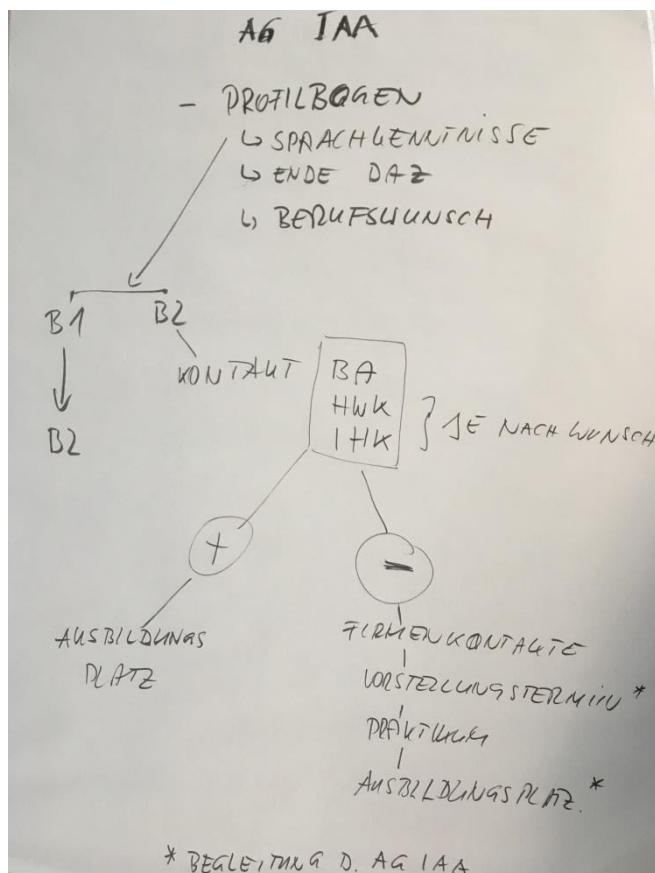 AG IAA
- PROFILBOGEN
↳ SPRACHKENNTNISSE
↳ ENDE DAZ
↳ BERUFSWUNSCH
B1 B2
B2
KONTAKT
BA
HWK
IHK
} JE NACH WUNSCH
+
-
AUSBILDUNGS
PLATZ
FIRMENKONTAKTE
VORSTELLUNGSTERMIN *
PRAKTIKUM
AUSBILDUNGSPLATZ. *
* BEGLEITUNG D. AG IAA